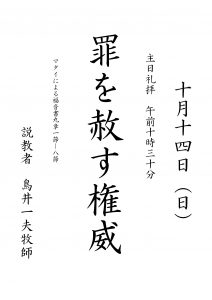 十月十四日（日）
主日礼拝　午前十時三十分
罪を赦す権威
マタイによる福音書九章一節－八節
説教者　鳥井一夫牧師